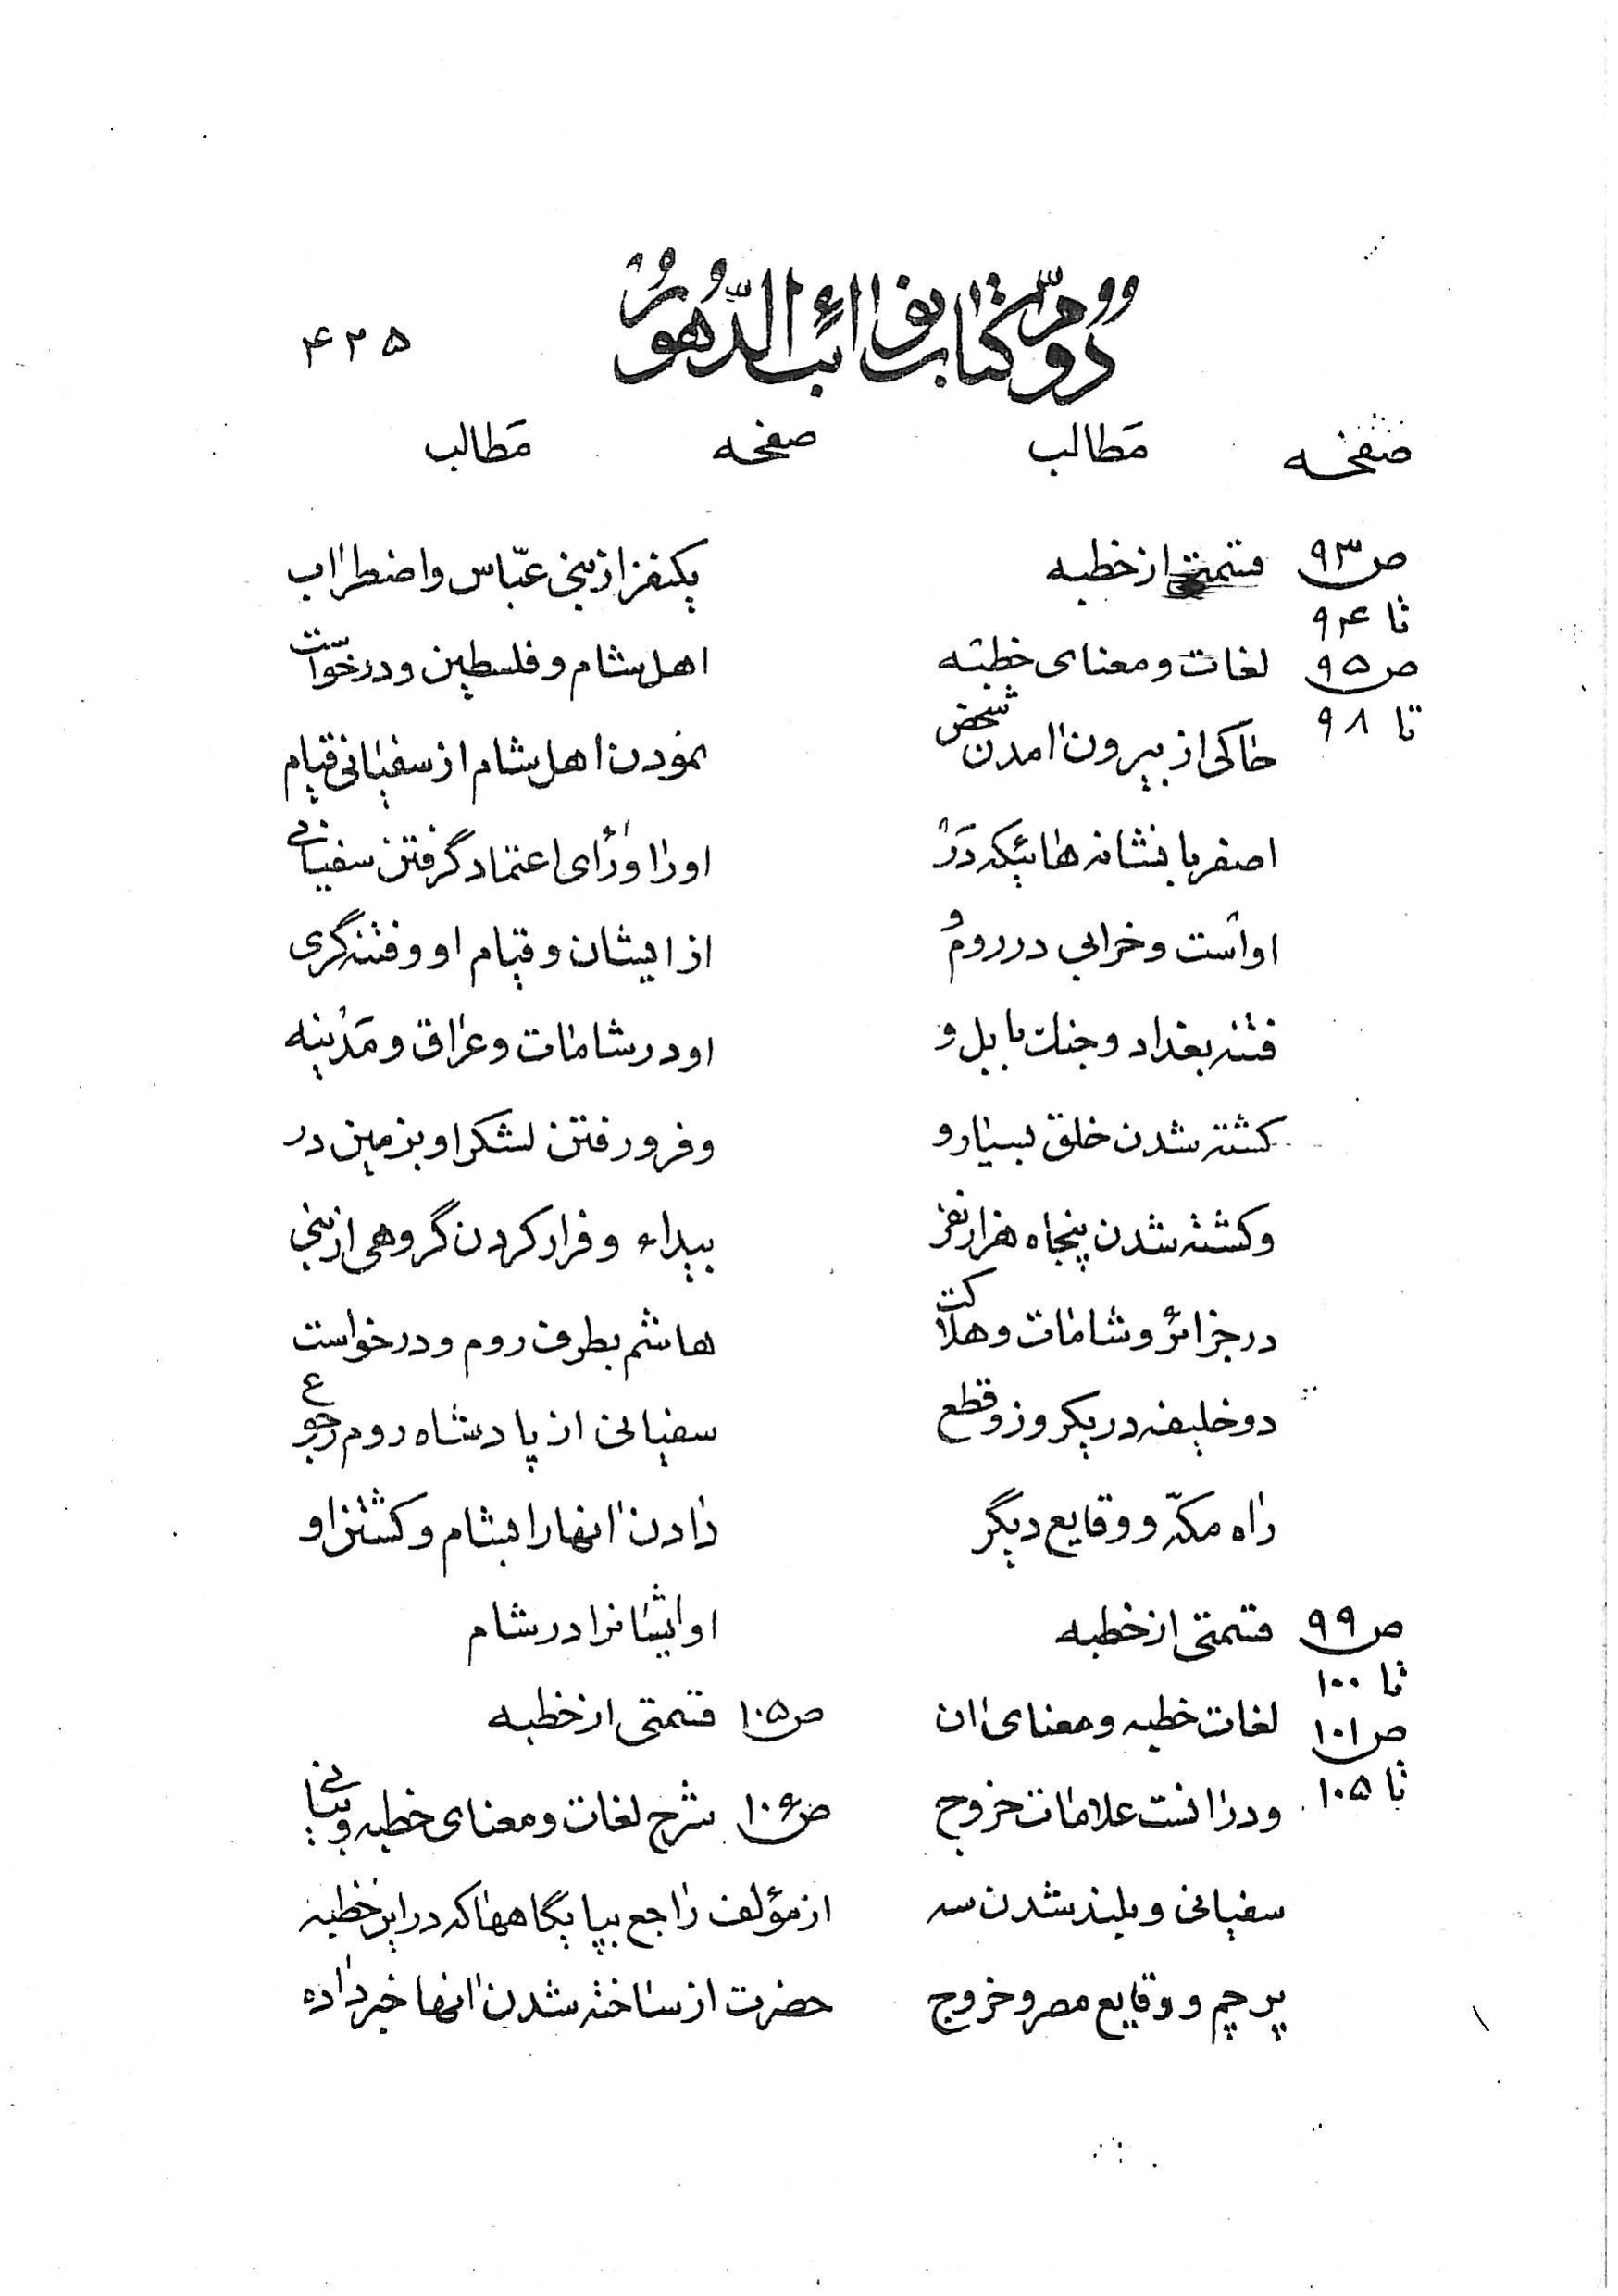 دوم کتاب نوائب الدهور
۴۲۵
صفحه مطالب صفحه مطالب
ص۹۳ قسمتی از خطبه
تا ۹۴
ص۹۵ لغات و معنای خطبه
تا ۹۸
حاکی از بیرون آمدن شخص
اصفر با نشانه هائیکه در
او است و خرابی در روم و
فتنه بغداد و جنك بابل و
کشته شدن خلق بسیار و
و کشته شدن پنجاه هزار نفر
در جزائر و شامات و هلاکت
دو خلیفه در یکروز و قطع
راه مکّه و وقایع دیگر
ص۹۹ قسمتی از خطبه
تا ۱۰۰
ص۱۰۱ لغات خطبه و معنای آن
تا ۱۰۵
و در آنست علامات خروج
سفیانی و بلند شدن سه
پرچم و وقایع مصر و خروج
یکنفر از بنی عبّاس و اضطراب
اهل شام و فلسطین و درخواست
نمودن اهل شام از سفیانی قیام
او را و رأی اعتماد گرفتن سفیانی
از ایشان و قیام او و فتنه گری
او در شامات و عراق و مَدینه
و فرو رفتن لشکر او بزمین در
بیداء و فرار کردن گروهی از بنی
هاشم بطرف روم و درخواست
سفیانی از پادشاه روم رجوع
دادن آنها را بشام و کشتن او
او ایشانرا در شام
ص۱۰۵ قسمتی از خطبه
ص۱۰۶ شرح لغات و معنای خطبه و بیانی
از مؤلف راجع بپایگاهها که در این خطبه
حضرت از ساخته شدن آنها خبر داده